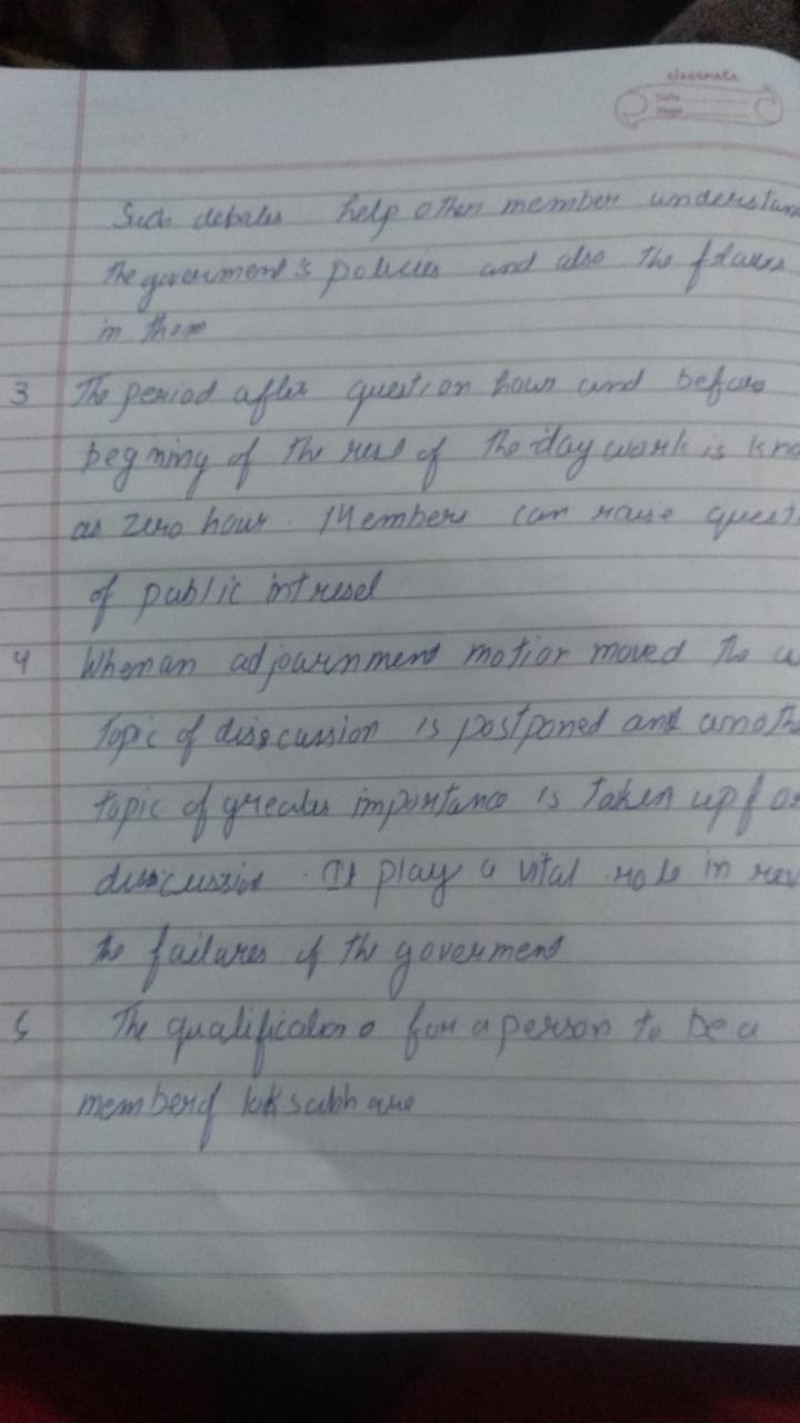 classmate
Date
Page
Such debates help other member understan
the goverment's policies and also the flaws
in them
3 The period after question hour and before
begnning of the rest of the day work is kno
as zero hour. Members can raise quest
of public intresel
4 When an adjournment motion moved the
topic of disscussion is postponed and anoth
topic of greater importance is taken up for
discussion. It play a vital role in rev
the failures of the goverment
5 The qualifications for a person to be a
member of loksabh are